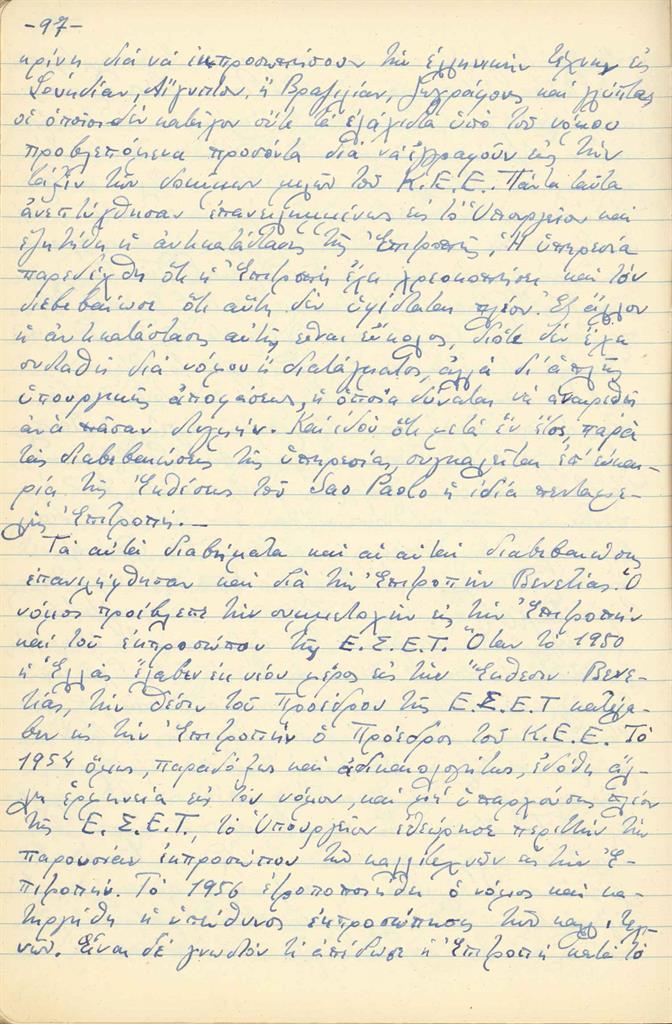 -97-
κρίνη διά νά ἐκπροσωπήσουν τήν ἑλληνικήν τέχνην εἰς
Σουηδίαν, Αἴγυπτον, ἤ Βραζιλίαν, ζωγράφους καί γλύπτας
οἱ ὁποῖοι δέν κατεῖχον οὔτε τά ἐλάχιστα ὑπό τοῦ νόμου
προβλεπόμενα προσόντα διά νά ἐγγραφοῦν εἰς τήν
τάξιν τῶν δοκίμων μελῶν τοῦ Κ.Ε.Ε. Πάντα ταῦτα
ἀνεπτύχθησαν ἐπανειλημμένως εἰς τό Ὑπουργεῖον καί
ἐζητήθη ἡ ἀντικατάστασις τῆς Ἐπιτροπῆς. Ἡ ὑπηρεσία
παρεδέχθη ὅτι ἡ Ἐπιτροπή ἔχει χρεοκοπήσει καί τόν
διεβεβαίωσε ὅτι αὕτη δέν ὑφίσταται πλέον. Ἐξ ἄλλου
ἡ ἀντικατάστασις αὐτῆς εἶναι εὔκολος, διότι δέν ἔχει
συσταθῆ διά νόμου ἤ διατάγματος, ἀλλά δι' ἁπλῆς
ὑπουργικῆς ἀποφάσεως, ἡ ὁποία δύναται νά ἀναιρεθῆ
ἀνά πᾶσαν στιγμήν. Καί ἰδού ὅτι μετά ἕν ἔτος, παρά
τάς διαβεβαιώσεις τῆς ὑπηρεσίας, συγκαλεῖται ἐπ' εὐκαι-
ρίᾳ τῆς Ἐκθέσεως τοῦ Sao Paolo ἡ ἰδία πενταμε-
λής Ἐπιτροπή.—
Τά αὐτά διαβήματα καί αἱ αὐταί διαβεβαιώσεις
ἐπανελήφθησαν καί διά τήν Ἐπιτροπήν Βενετίας. Ὁ
νόμος προέβλεπε τήν συμμετοχήν εἰς τήν Ἐπιτροπήν
καί τοῦ ἐκπροσώπου τῆς Ε.Σ.Ε.Τ. Ὅταν τό 1950
ἡ Ἑλλάς ἔλαβεν ἐκ νέου μέρος εἰς τήν Ἔκθεσιν Βενε-
τίας, τήν θέσιν τοῦ Προέδρου τῆς Ε.Σ.Ε.Τ κατέλα-
βεν εἰς τήν Ἐπιτροπήν ὁ Πρόεδρος τοῦ Κ.Ε.Ε. Τό
1954 ὅμως, παραδόξως καί ἀδικαιολογήτως, ἐδόθη ἄλ-
λη ἑρμηνεία εἰς τόν νόμον, καί μή ὑπαρχούσης πλέον
τῆς Ε.Σ.Ε.Τ., τό Ὑπουργεῖον ἐθεώρησε περιττήν τήν
παρουσίαν ἐκπροσώπου τῶν καλλιτεχνῶν εἰς τήν Ἐ-
πιτροπήν. Τό 1956 ἐτροποποιήθη ὁ νόμος καί κα-
τηργήθη ἡ ὑπεύθυνος ἐκπροσώπησις τῶν καλλιτεχ-
νῶν. Εἶναι δέ γνωστόν τί ἀπέδωσε ἡ Ἐπιτροπή κατά τό